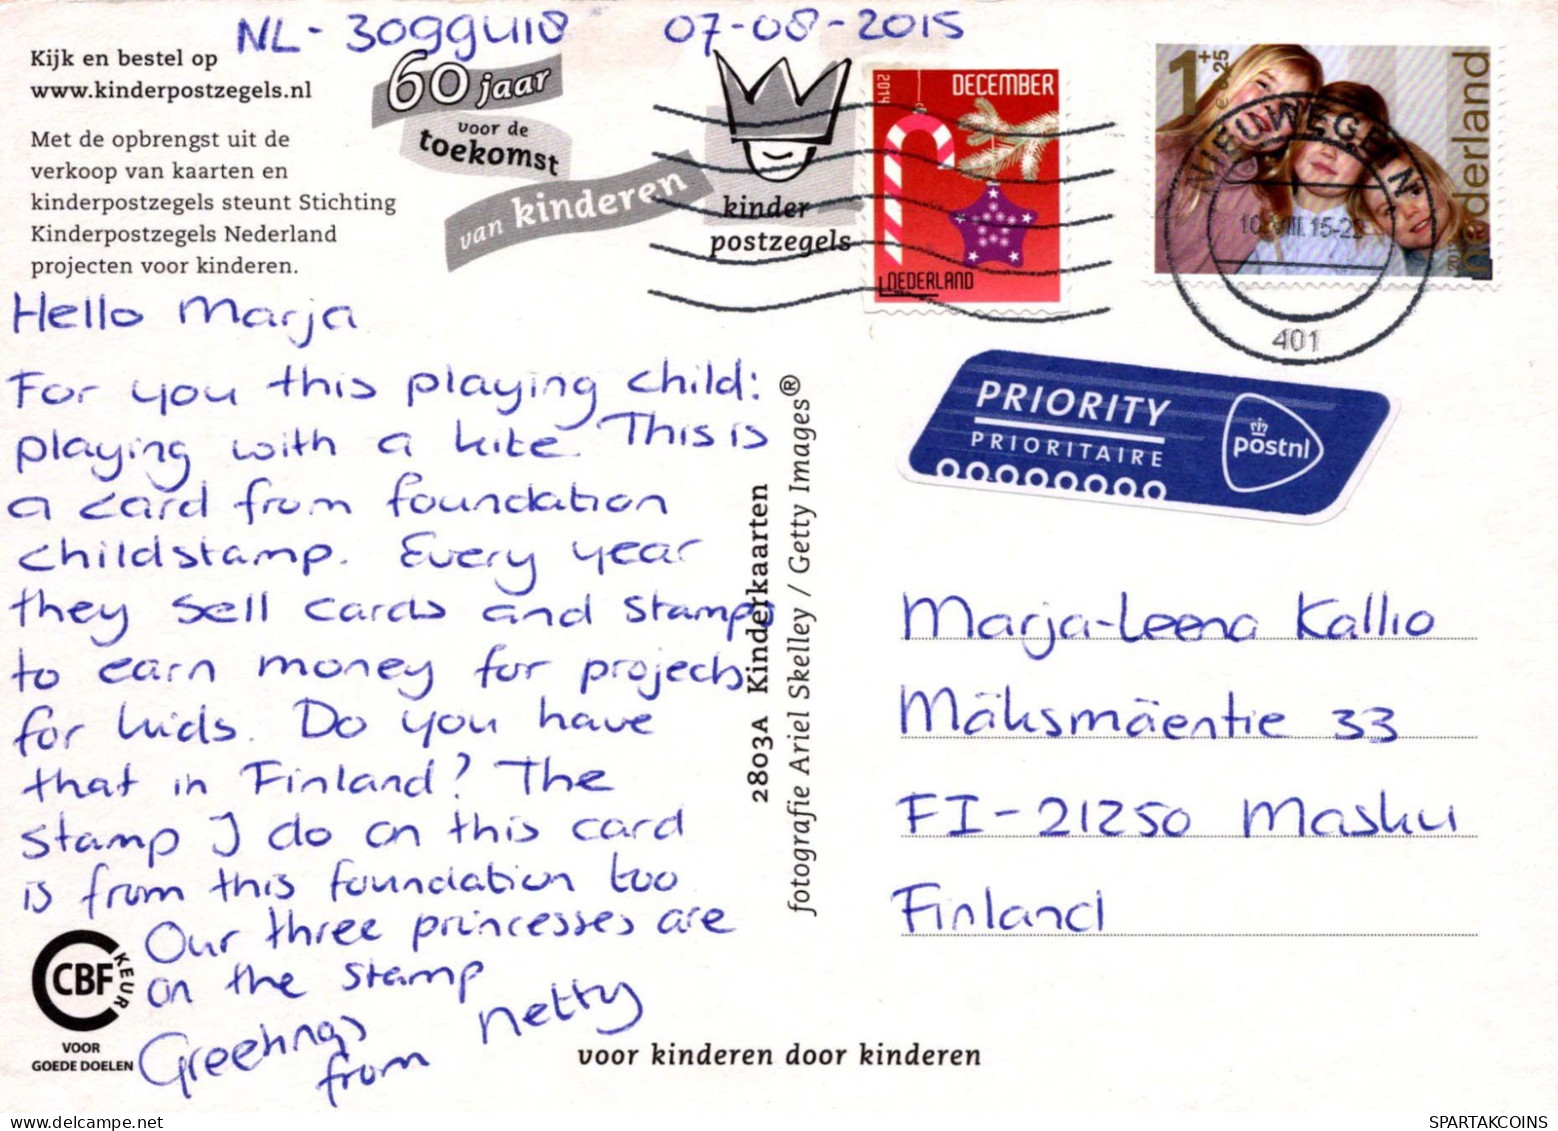 NL-3099418 07-08-2015
Kijk en bestel op
www.kinderpostzegels.nl
Met de opbrengst uit de
verkoop van kaarten en
kinderpostzegels steunt Stichting
Kinderpostzegels Nederland
projecten voor kinderen.
60 jaar
voor de
toekomst
van kinderen
kinder
postzegels
2014
DECEMBER
NEDERLAND
1+
Nederland
NIEUWEGEIN
401
PRIORITY
PRIORITAIRE
postnl
Hello Marja
For you this playing child:
playing with a kite. This is
a card from foundation
childstamp. Every year
they sell cards and stamps
to earn money for projects
for kids. Do you have
that in Finland? The
stamp I do on this card
is from this foundation too
Our three princesses are
on the stamp
Greetings
from Netty
2803A Kinderkaarten
fotografie Ariel Skelley / Getty Images®
Marja-Leena Kallio
Mäksmäentie 33
FI-21250 Masku
Finland
CBF
KEUR
VOOR
GOEDE DOELEN
voor kinderen door kinderen
SPARTAKCOINS